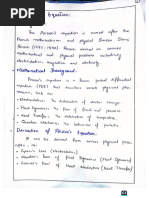 Equation:
The Poisson's equation is named after the
French mathematician and physicist Simeon Denis
Poisson (1781-1840). Poisson worked on various
mathematical and physical problems including
electrostatics, magnetism and elasticity.
Mathematical Background:
Poisson's equation is a partial differential
equation (PDE) that describes various physical pheno-
mena, such as
Electrostatics: The distribution of electric charge.
Fluid Dynamics: The flow of fluids in the presence of
Heat Transfer: The distribution of temperature in a
Quantum Mechanics: The behaviour of particles
Derivation of Poisson's Equation:
It can be derived from various physical princi-
ples, such as:
Gauss's Law (electrostatics)
of Fluid Dynamics (Fluid Dynamics)
of Heat Conduction (Heat Transfer)